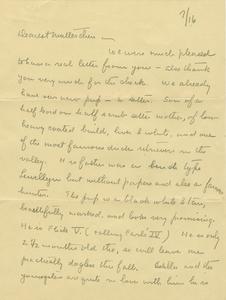 7/16
Dearest Mutterchen —
We were much pleased
to have a real letter from you — also thank
you very much for the check. We already
have our new pup — a setter. Son of a
half bred or half scrub setter mother, of low
heavy coated build, live & white, and one
of the most famous duck retrievers in the
valley. His father was a bench type
Llewellyn but without papers and also a famous
hunter. The pup is a black white & tan,
beautifully marked, and looks very promising.
He is Flick V. (calling Carl's IV) He is only
2½ months old tho, so will leave me
practically dogless this fall. and the
youngsters are quite in love with him so